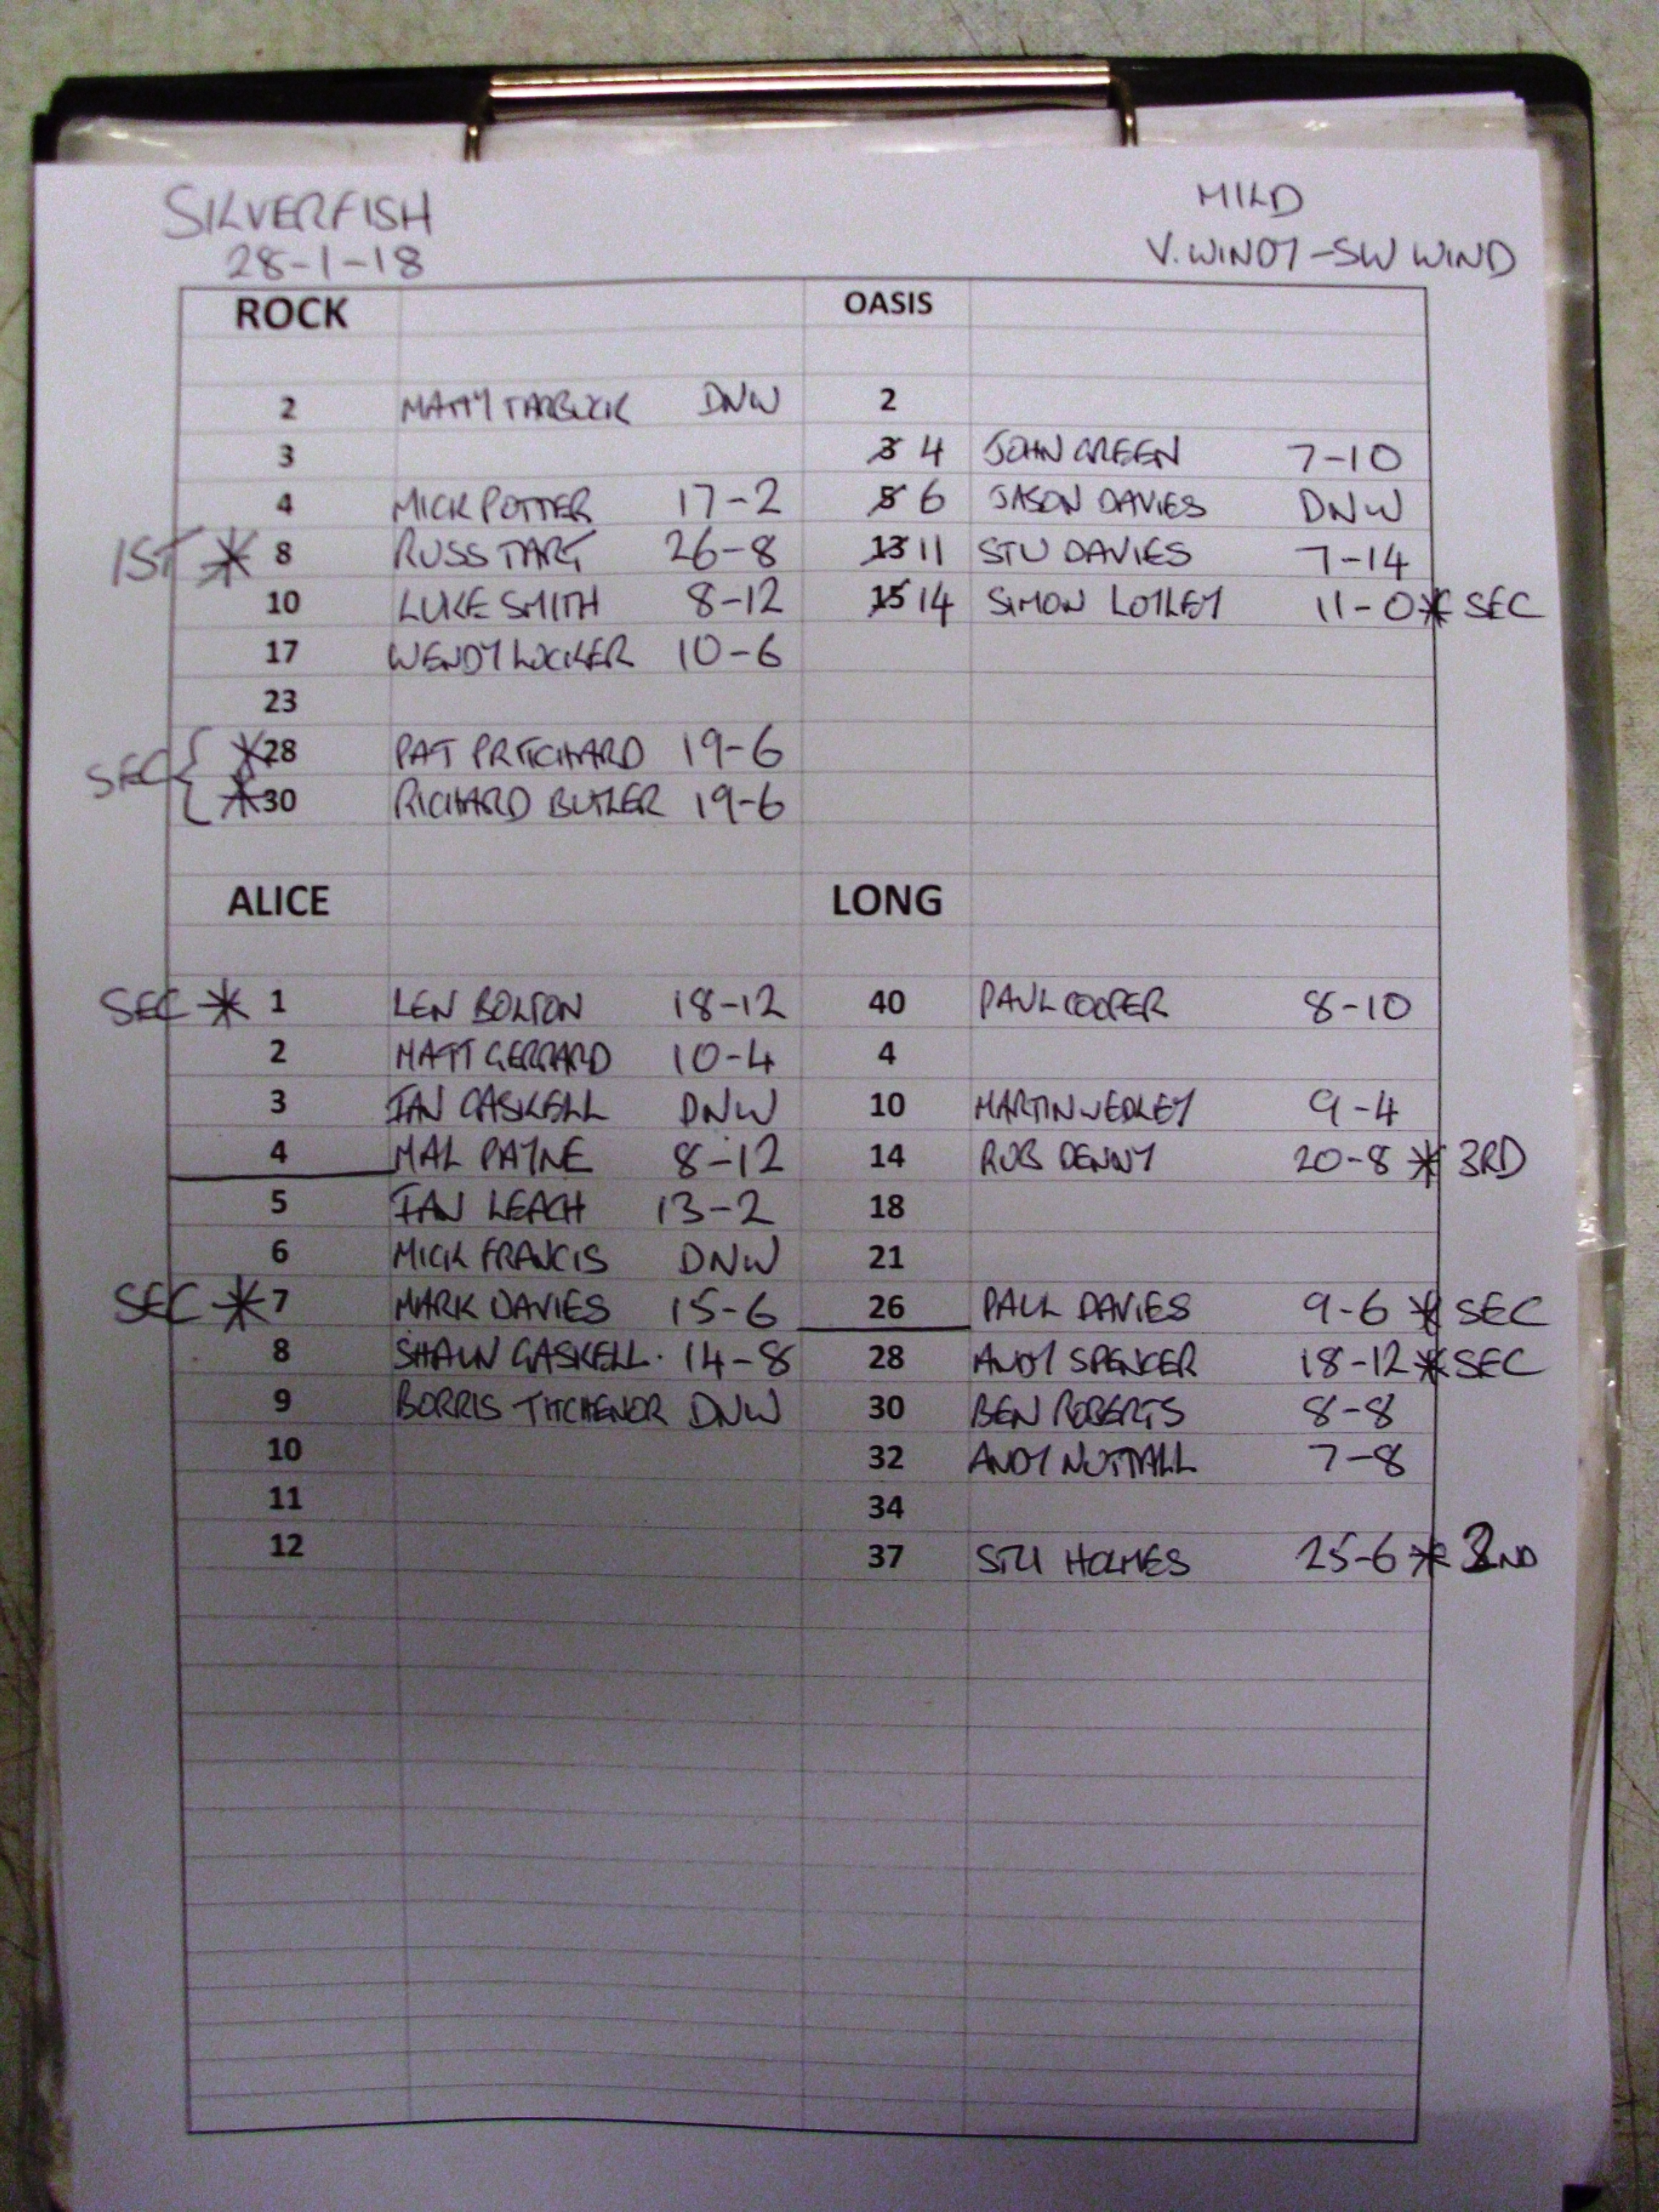 SILVERFISH
28-1-18
MILD
V. WINDY - SW WIND
ROCK OASIS
2 MATTY TARBUCK DNW 2
3 3 4 JOHN GREEN 7-10
4 MICK POTTER 17-2 5 6 JASON DAVIES DNW
1ST * 8 RUSS TART 26-8 13 11 STU DAVIES 7-14
10 LUKE SMITH 8-12 15 14 SIMON 11-0 * SEC
17 WENDY LOCKER 10-6
23
SEC { * 28 PAT PRITCHARD 19-6
* 30 RICHARD BUTLER 19-6
ALICE LONG
SEC * 1 LEN BOLTON 18-12 40 PAUL COOPER 8-10
2 MATT GERRARD 10-4 4
3 IAN GASKELL DNW 10 MARTIN WEDLEY 9-4
4 MAL PAYNE 8-12 14 ROB DENNY 20-8 * 3RD
5 IAN LEACH 13-2 18
6 MICK FRANCIS DNW 21
SEC * 7 MARK DAVIES 15-6 26 PAUL DAVIES 9-6 * SEC
8 SHAUN GASKELL. 14-8 28 ANDY SPENCER 18-12 * SEC
9 BORRIS TITCHENOR DNW 30 BEN ROBERTS 8-8
10 32 ANDY NUTTALL 7-8
11 34
12 37 STU HOLMES 25-6 * 2ND